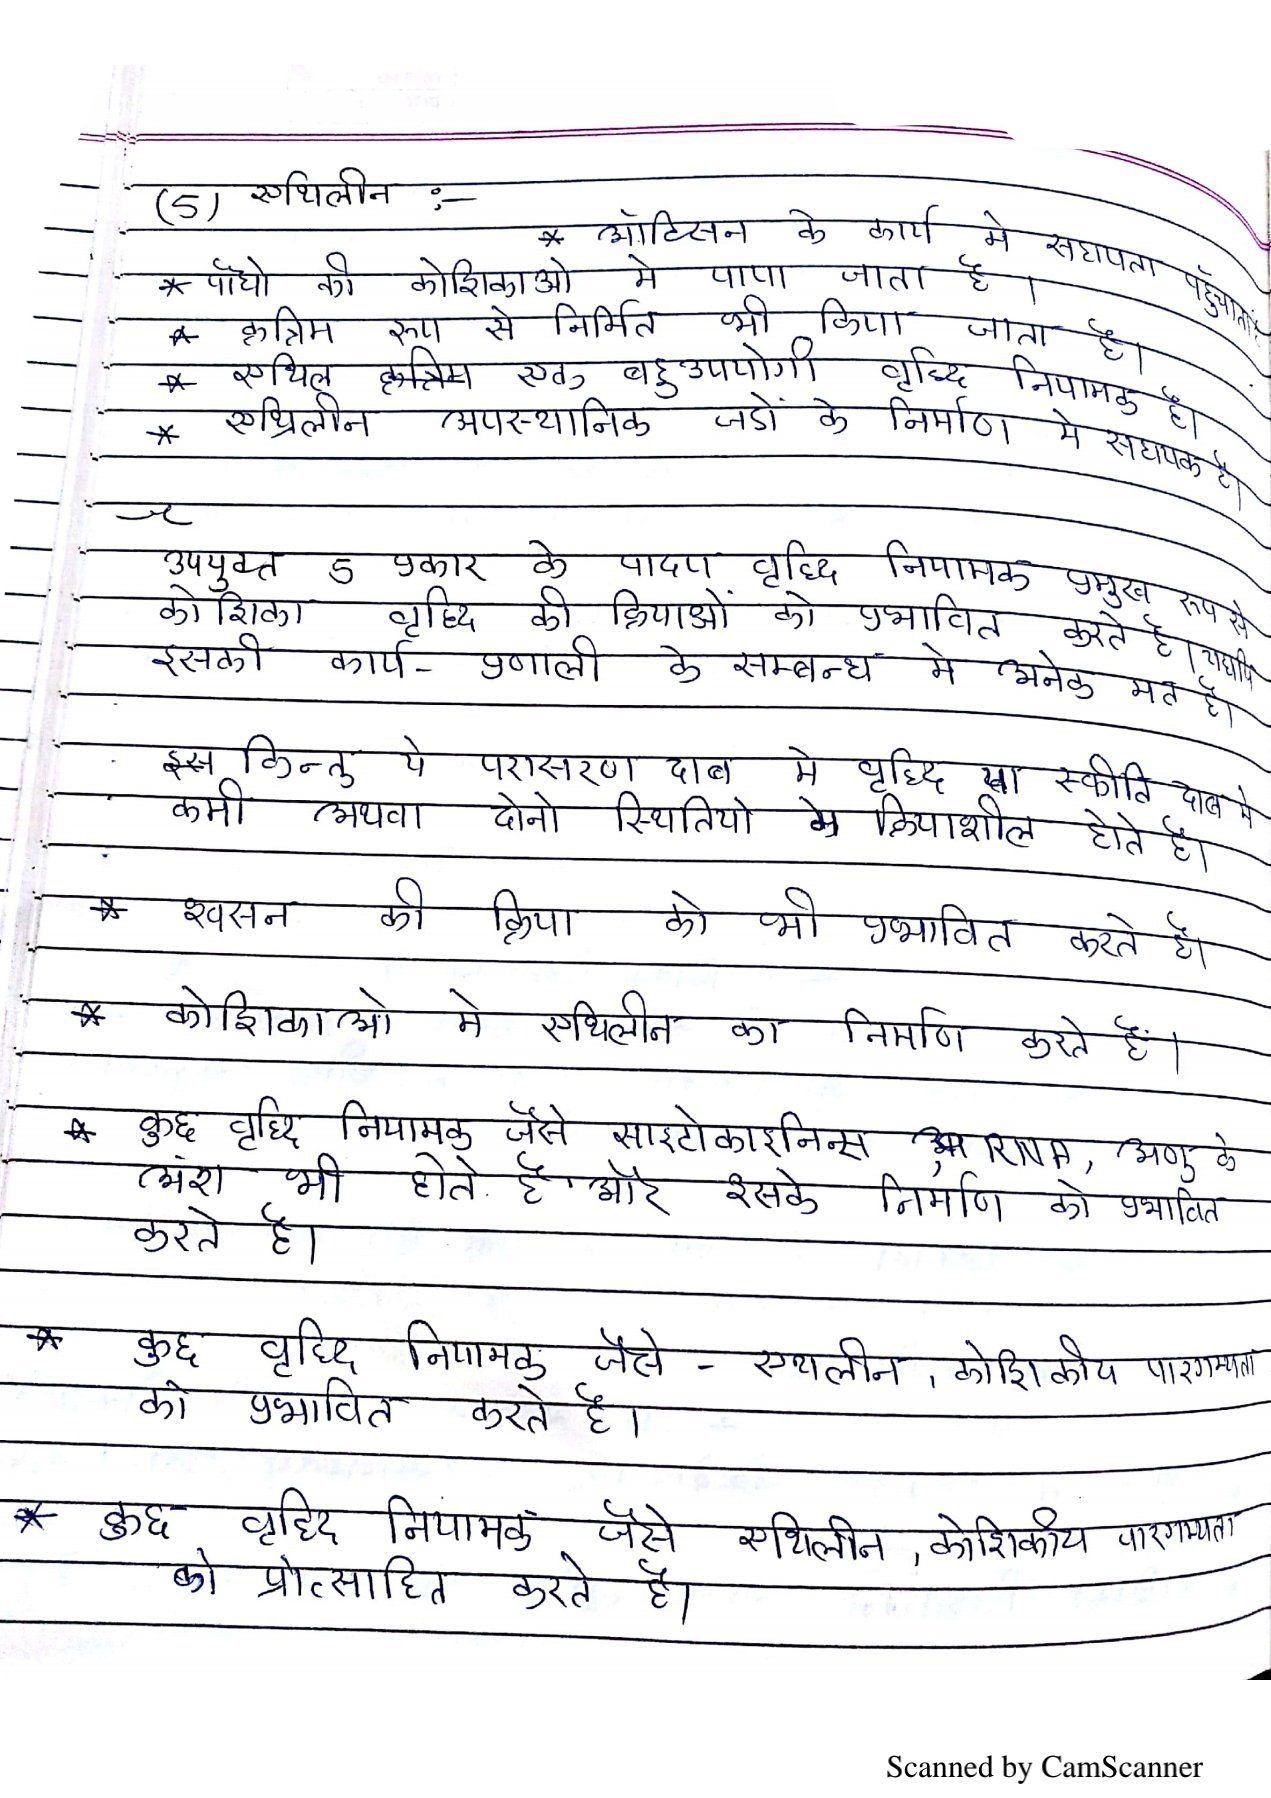 (5) एथिलीन :-
* ऑटिसन के कार्य मे सहायता पहुँचाता है
* पौधो की कोशिकाओ मे पाया जाता है ।
* कृत्रिम रूप से निर्मित भी किया जाता है।
* एथिल कृत्रिम एक बहुउपयोगी वृध्दि नियामक है।
* एथ्रिलीन अपस्थानिक जडों के निर्माण मे सहायक है।
उपयुक्त 5 प्रकार के पादप वृध्दि नियामक प्रमुख रूप से
कोशिका वृध्दि की क्रियाओं को प्रभावित करते है। यद्यपि
इसकी कार्य - प्रणाली के सम्बन्ध मे अनेक मत है।
इस किन्तु ये परासरण दाब मे वृध्दि या स्फीति दाब मे
कमी अथवा दोनो स्थितियो मे क्रियाशील होते है।
* श्वसन की क्रिया को भी प्रभावित करते है।
* कोशिकाओ मे एथिलीन का निर्माण करते हैं ।
* कुछ वृध्दि नियामक जैसे साइटोकाइनिन्स RNA, अणु के
अंश भी होते है और इसके निर्माण को प्रभावित
करते है।
* कुछ वृध्दि नियामक जैसे - एथलीन , कोशिकीय पारगम्यता
को प्रभावित करते है।
* कुछ वृध्दि नियामक जैसे एथिलीन , कोशिकीय पारगम्यता
को प्रोत्साहित करते है।
Scanned by CamScanner